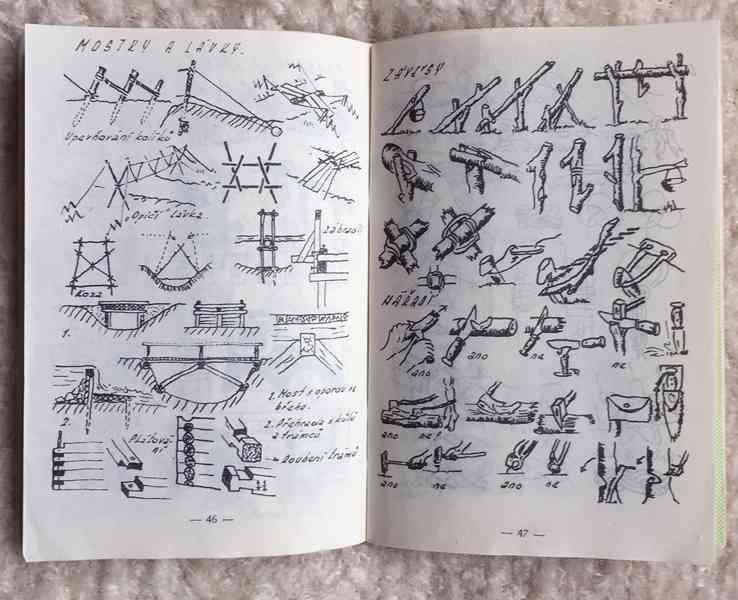 MOSTKY A LÁVKY.
Upevňování kolíků
Opičí lávka
zábradlí
Koza
1.
1. Most s oporou na
břehu.
2. Přehrada z kůlů
a trámců
2.
Plátová-
ní
→ Roubení trámů
— 46 —
ZÁVĚSY
NÁŘADÍ
ano
ano
ne
ne
ano
ne!
ano
ne
ano
ne
— 47 —